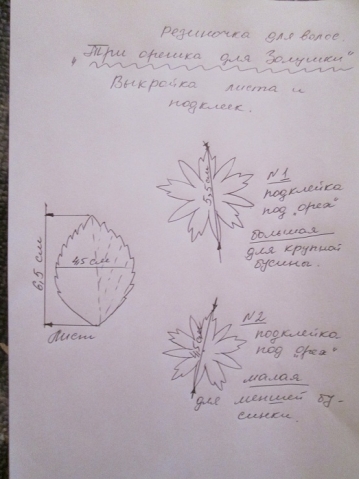 Резиночка для волос.
„Три орешка для Золушки“
Выкройка листа и
подклеек.
5,5 см
N1
подклейка
под „орех“
большая
для крупной
бусины.
6,5 см
4,5 см
Лист
4,5 см
N2
подклейка
под „орех“
малая
для меньшей бу-
синки.